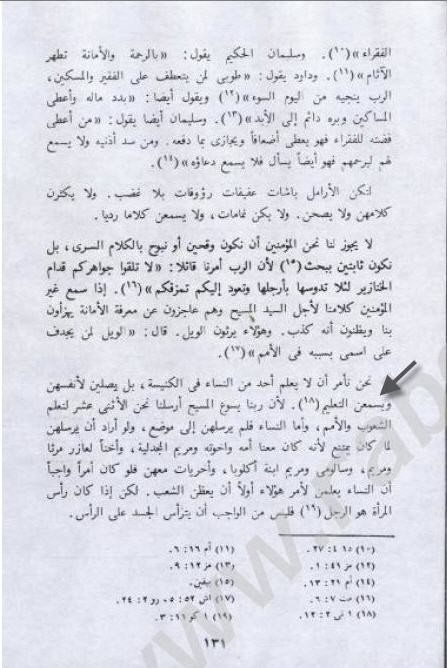 الفقراء»(١٠). وسليمان الحكيم يقول: «بالرحمة والأمانة تطهر
الآثام»(١١). وداود يقول: «طوبى لمن يتعطف على الفقير والمسكين،
الرب ينجيه من اليوم السوء»(١٢) ويقول أيضا: «بدد ماله وأعطى
المساكين وبره دائم إلى الأبد»(١٣). وسليمان أيضا يقول: «من أعطى
فضته للفقراء فهو يعطى أضعافاً ويجازى بما دفعه. ومن سد أذنيه ولا يسمع
لهم ليرحمهم فهو أيضاً يسأل فلا يسمع دعاؤه»(١٤).
لتكن الأرامل باشات عفيفات رؤوفات بلا غضب. ولا يكثرن
كلامهن ولا يصحن. ولا يكن نمامات، ولا يسمعن كلاما رديا.
لا يجوز لنا نحن المؤمنين أن نكون وقحين أو نبوح بالكلام السرى، بل
نكون ثابتين ببحث(١٥) لأن الرب أمرنا قائلا: «لا تلقوا جواهركم قدام
الخنازير لئلا تدوسها بأرجلها وتعود إليكم تمزقكم»(١٦). إذا سمع غير
المؤمنين كلامنا لأجل السيد المسيح وهم عاجزون عن معرفة الأمانة يهزأون
بنا ويظنون أنه كذب. وهؤلاء يرثون الويل. قال: «الويل لمن يجدف
على اسمى بسببه فى الأمم»(١٧).
نحن نأمر أن لا يعلم أحد من النساء فى الكنيسة، بل يصلين لأنفسهن
ويسمعن التعليم(١٨). لأن ربنا يسوع المسيح أرسلنا نحن الأثنى عشر لنعلم
الشعوب والأمم، وأما النساء فلم يرسلهن إلى موضع، ولو أراد أن يرسلهن
لما كان يمتنع لأنه كان معنا أمه واخوته ومريم المجدلية، وأختاً لعازر مرثا
ومريم، وسالومى ومريم ابنة أكلوبا، وأخريات معهن فلو كان أمراً واجباً
أن النساء يعلمن لأمر هؤلاء أولاً أن يعظن الشعب. لكن إذا كان رأس
المرأة هو الرجل(١٩) فليس من الواجب أن يترأس الجسد على الرأس.
(١٠) دا ٤: ٢٧.
(١١) أم ١٦: ٦.
(١٢) مز ٤١: ١.
(١٣) مز ١١٢: ٩.
(١٤) أم ٢١: ١٣.
(١٥) بيقين.
(١٦) مت ٧: ٦.
(١٧) اش ٥٢: ٥، رو ٢: ٢٤.
(١٨) ١ تى ٢: ١٢.
(١٩) ١ كو ١١: ٣.
١٣١